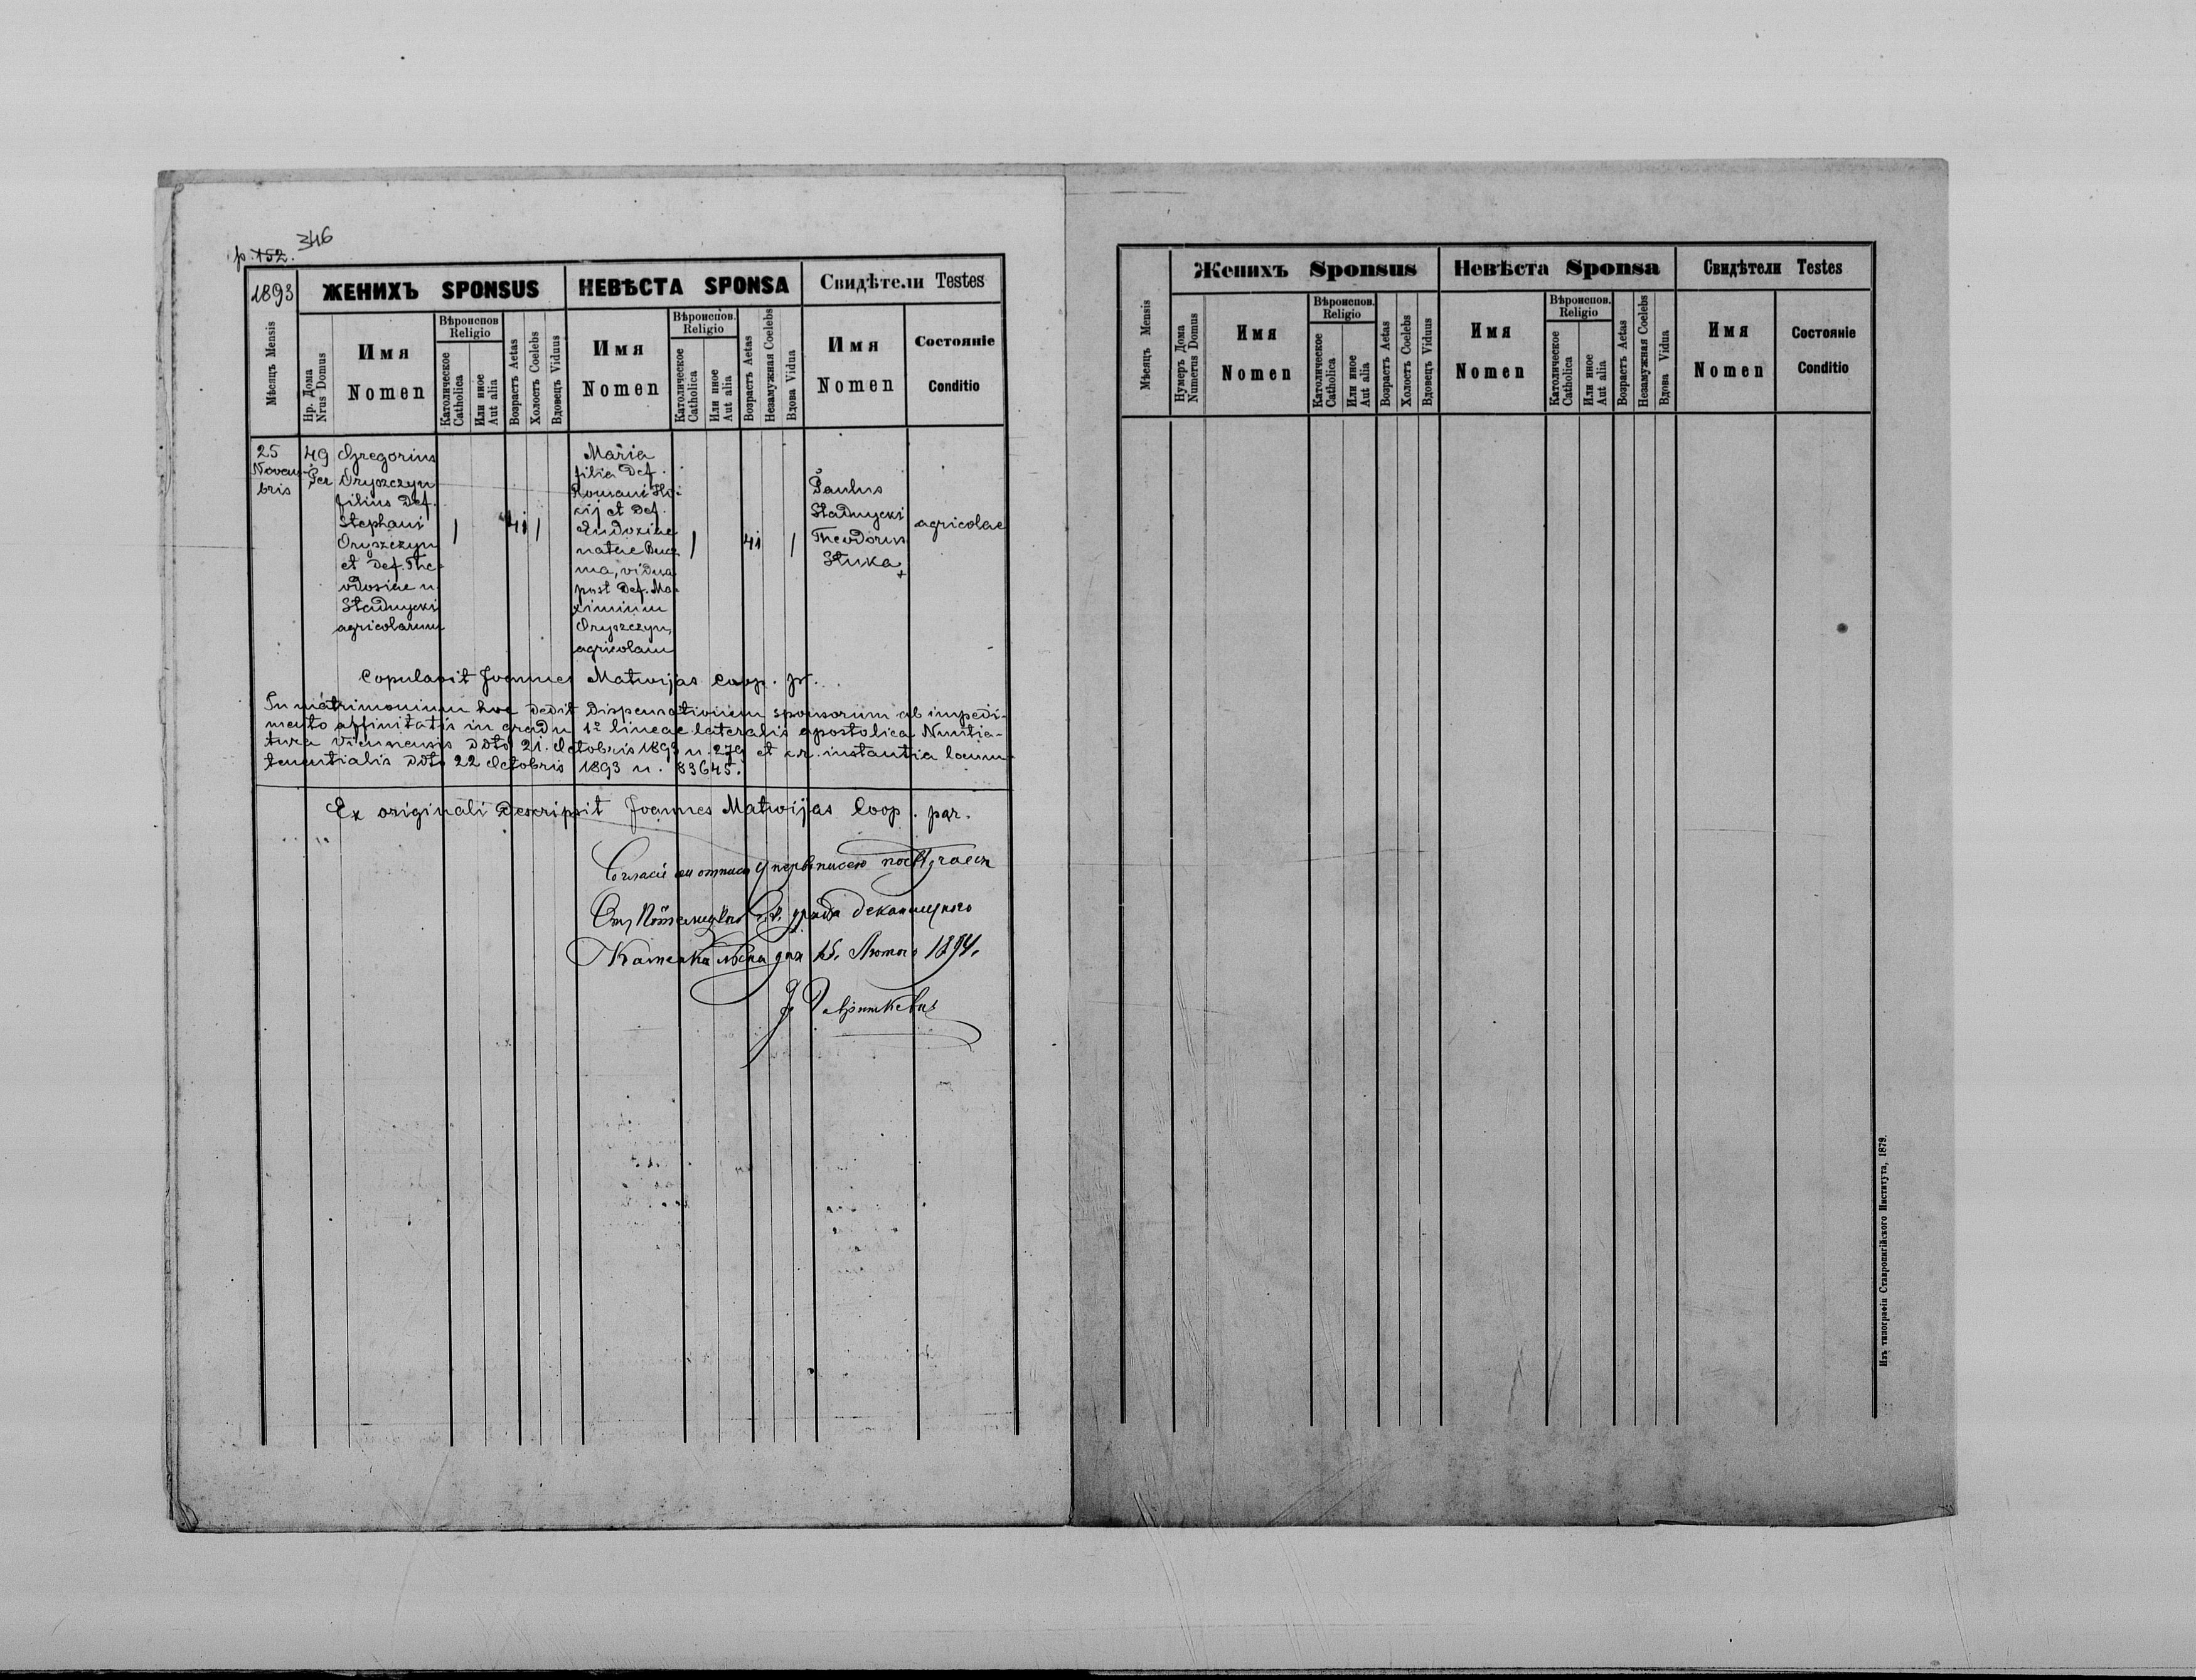 346
p. 152.
1893
ЖЕНИХЪ SPONSUS
НЕВѢСТА SPONSA
Свидѣтели Testes
Мѣсяцъ Mensis
Нр. Дома
Nrus Domus
Имя
Nomen
Вѣроиспов
Religio
Католическое
Catholica
Или иное
Aut alia
Возрастъ Aetas
Холостъ Coelebs
Вдовецъ Viduus
Имя
Nomen
Вѣроиспов.
Religio
Католическое
Catholica
Или иное
Aut alia
Возрастъ Aetas
Незамужная Coelebs
Вдова Vidua
Имя
Nomen
Состояніе
Conditio
25
Novem
bris
49
Gregorius
Oryszczyn
filius Def.
Stephani
Oryszczyn
et Def. The-
odosiae n.
Stadnycki
agricolarum
41
Maria
filia Def.
Romani
et Def.
Eudoxiae
natae
ma, vidua
post Def. Ma-
ximium
Oryszczyn,
agricolam
41
Paulus
Stadnycki
Theodorus
Stuka
+
agricolae
Copulavit Joannes Matwijas coop. pr.
In matrimonium hoc dedit dispensationem sponsorum ab impedi-
mento affinitatis in gradu 1º lineae lateralis apostolica Nuntia-
tura Viennensis ddto 21. Octobris 1893 n. 279 et c.r. instantia locum-
tenentialis ddto 22 Octobris 1893 n. 83645.
Ex originali descripsit Joannes Matwijas Coop. par.
деканального
Каменка дня 15. Лютого 1894.
Женихъ Sponsus
Невѣста Sponsa
Свидѣтели Testes
Мѣсяцъ Mensis
Нумеръ Дома
Numerus Domus
Имя
Nomen
Вѣроиспов.
Religio
Католическое
Catholica
Или иное
Aut alia
Возрастъ Aetas
Холостъ Coelebs
Вдовецъ Viduus
Имя
Nomen
Вѣроиспов.
Religio
Католическое
Catholica
Или иное
Aut alia
Возрастъ Aetas
Незамужная Coelebs
Вдова Vidua
Имя
Nomen
Состояніе
Conditio
Изъ типографіи Ставропигійского Института, 1879.